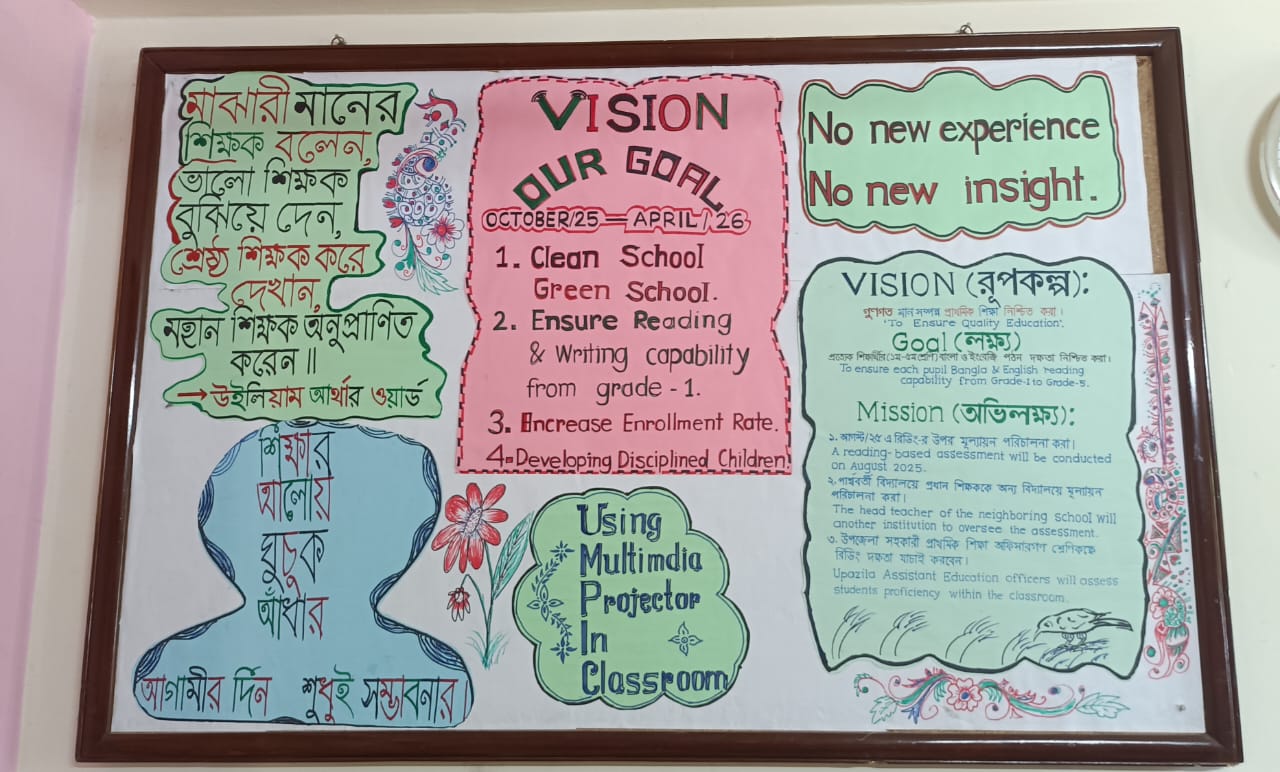 মাঝারী মানের
শিক্ষক বলেন,
ভালো শিক্ষক
বুঝিয়ে দেন,
শ্রেষ্ঠ শিক্ষক করে
দেখান,
মহান শিক্ষক অনুপ্রাণিত
করেন॥
→ উইলিয়াম আর্থার ওয়ার্ড
শিক্ষার
আলোয়
ঘুচুক
আঁধার
আগামীর দিন শুধুই সম্ভাবনার।
VISION
OUR GOAL
OCTOBER/25 = APRIL/26
1. Clean School
Green School.
2. Ensure Reading
& Writing capability
from grade - 1.
3. Encrease Enrollment Rate.
4. Developing Disciplined Children
Using
Multimdia
Projector
In
Classroom
No new experience
No new insight.
VISION (রূপকল্প):
গুণগত মান সম্পন্ন প্রাথমিক শিক্ষা নিশ্চিত করা।
'To Ensure Quality Education'.
Goal (লক্ষ্য)
প্রত্যেক শিক্ষার্থীর (১ম-৫ম শ্রেণি) বাংলা ও ইংরেজি পঠন দক্ষতা নিশ্চিত করা।
To ensure each pupil Bangla & English reading
capability from Grade-1 to Grade-5.
Mission (অভিলক্ষ্য):
১. আগস্ট/২৫ এ রিডিং-র উপর মূল্যায়ন পরিচালনা করা।
A reading-based assessment will be conducted
on August 2025.
২. পার্শ্ববর্তী বিদ্যালয়ে প্রধান শিক্ষককে অন্য বিদ্যালয়ে মূল্যায়ন
পরিচালনা করা।
The head teacher of the neighboring school will
another institution to oversee the assessment.
৩. উপজেলা সহকারী প্রাথমিক শিক্ষা অফিসারগণ শ্রেণিকক্ষে
রিডিং দক্ষতা যাচাই করবেন।
Upazila Assistant Education officers will assess
students proficiency within the classroom.